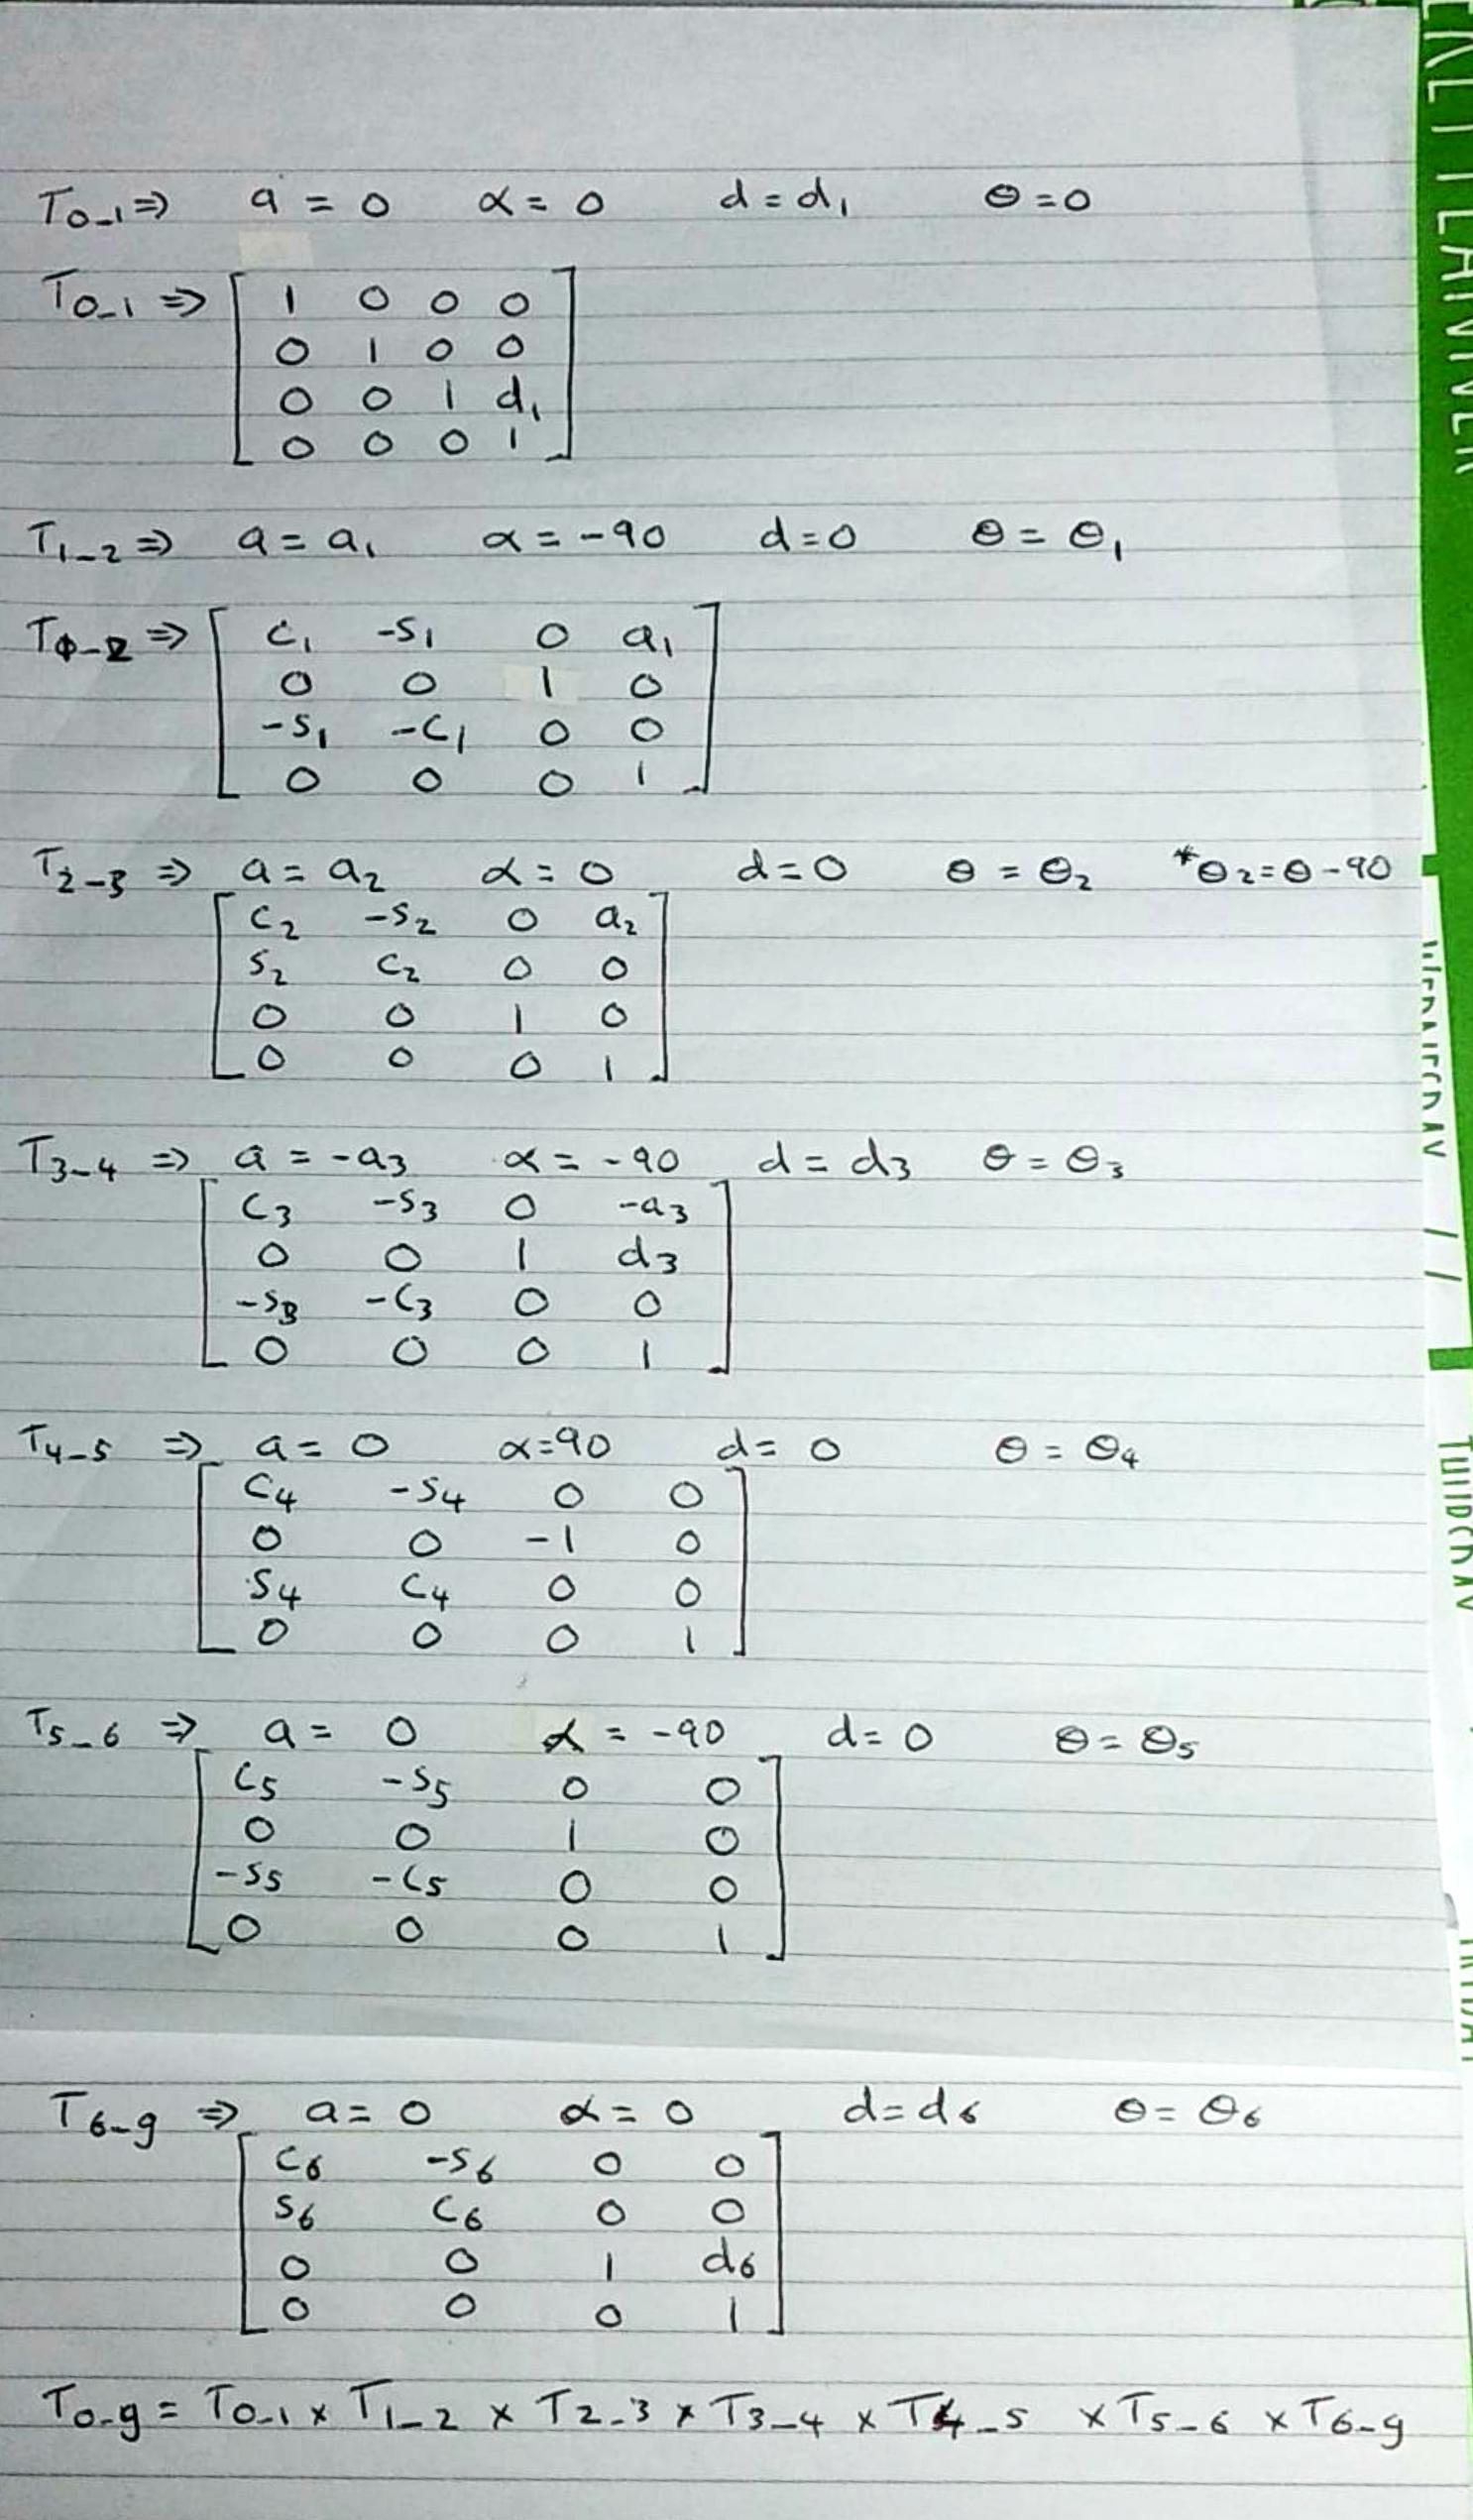 T0_1 ⇒ a = 0 α = 0 d = d1 θ = 0
T0_1 ⇒ [ 1 0 0 0
0 1 0 0
0 0 1 d1
0 0 0 1 ]
T1_2 ⇒ a = a1 α = -90 d = 0 θ = θ1
⇒ [ c1 -s1 0 a1
0 0 1 0
-s1 -c1 0 0
0 0 0 1 ]
T2_3 ⇒ a = a2 α = 0 d = 0 θ = θ2 *θ2 = θ - 90
[ c2 -s2 0 a2
s2 c2 0 0
0 0 1 0
0 0 0 1 ]
T3_4 ⇒ a = -a3 α = -90 d = d3 θ = θ3
[ c3 -s3 0 -a3
0 0 1 d3
-s3 -c3 0 0
0 0 0 1 ]
T4_5 ⇒ a = 0 α = 90 d = 0 θ = θ4
[ c4 -s4 0 0
0 0 -1 0
s4 c4 0 0
0 0 0 1 ]
T5_6 ⇒ a = 0 α = -90 d = 0 θ = θ5
[ c5 -s5 0 0
0 0 1 0
-s5 -c5 0 0
0 0 0 1 ]
T6_g ⇒ a = 0 α = 0 d = d6 θ = θ6
[ c6 -s6 0 0
s6 c6 0 0
0 0 1 d6
0 0 0 1 ]
T0_g = T0_1 × T1_2 × T2_3 × T3_4 × T4_5 × T5_6 × T6_g